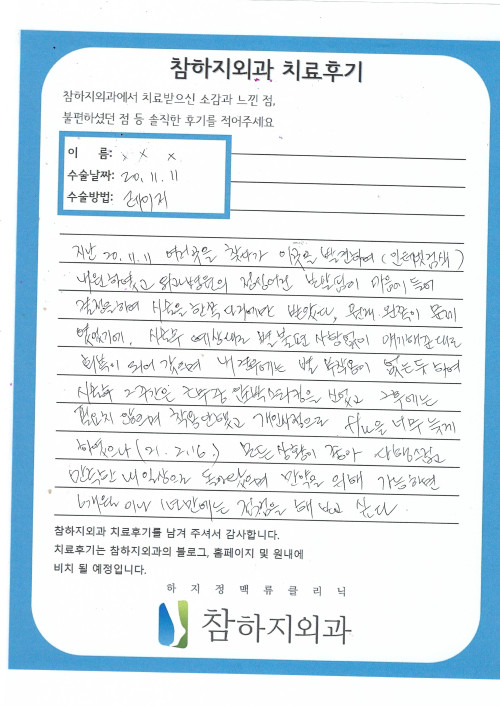 참하지외과 치료후기
참하지외과에서 치료받으신 소감과 느낀 점,
불편하셨던 점 등 솔직한 후기를 적어주세요
이 름: x x x
수술날짜: 20. 11. 11
수술방법: 레이저
지난 20. 11. 11 여러곳을 찾다가 이곳을 발견하여 (인터넷검색)
내원하였고 원장님의 마음에 들어
결정을하여 시술은 한쪽 다리에만 받았다. 원래 왼쪽이 문제
였었기에, 시술후 예상대로 별 불편 사항없이 얘기해준대로
회복이 되어 갔으며 내 경우에는 별 부작용이 없는듯 하여
시술후 2주간은 압박스타킹을 신었고 그후에는
필요치 않으며 착용안했고 개인사정으로 f/u을 너무 늦게
하였으나 (21. 2. 16.) 모든 상황이 좋아
내 일상으로 돌아왔으며 만약을 위해 가능하면
6개월 이나 1년만에는 점검을 해 보고 싶다.
참하지외과 치료후기를 남겨 주셔서 감사합니다.
치료후기는 참하지외과의 블로그, 홈페이지 및 원내에
비치 될 예정입니다.
하지정맥류클리닉
참하지외과